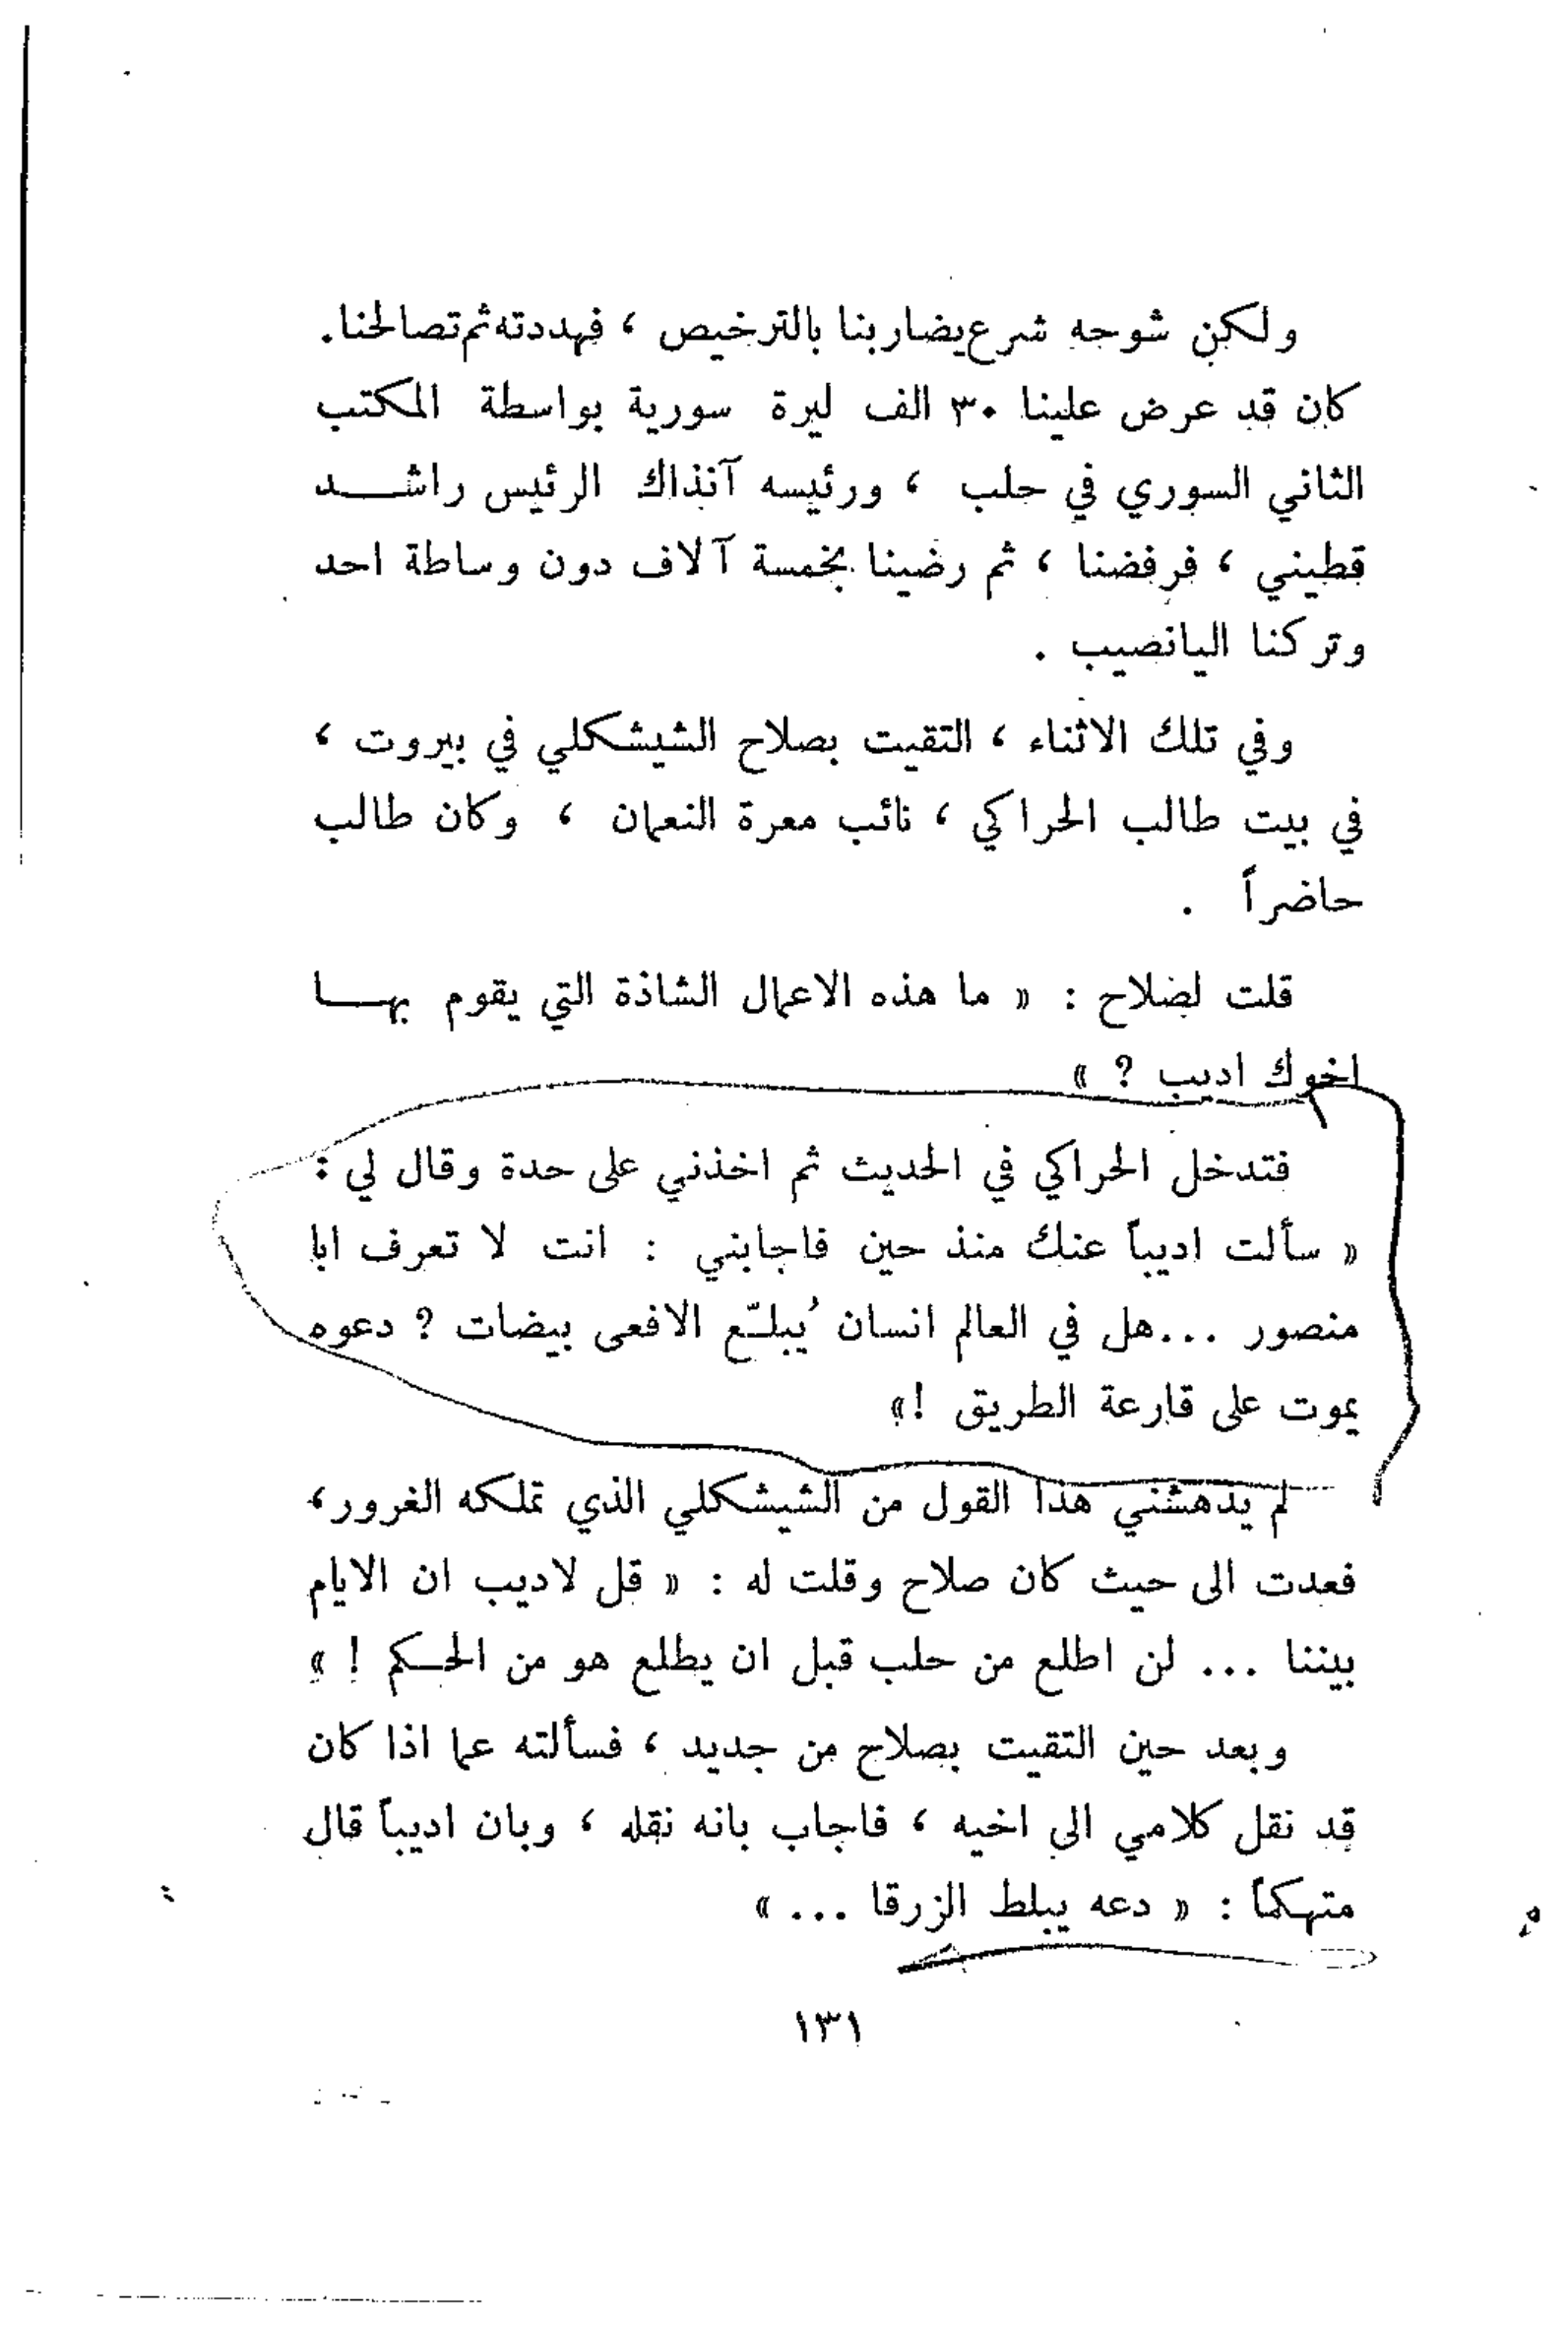 ولكن شوحه شرع يضاربنا بالترخيص ، فهددته ثم تصالحنا.
كان قد عرض علينا ٣٠ الف ليرة سورية بواسطة المكتب
الثاني السوري في حلب ، ورئيسه آنذاك الرئيس راشد
قطيني ، فرفضنا ، ثم رضينا بخمسة آلاف دون وساطة احد
وتركنا اليانصيب .
وفي تلك الاثناء ، التقيت بصلاح الشيشكلي في بيروت ،
في بيت طالب الحراكي ، نائب معرة النعمان ، وكان طالب
حاضراً .
قلت لصلاح : « ما هذه الاعمال الشاذة التي يقوم بها
اخوك اديب ? »
فتدخل الحراكي في الحديث ثم اخذني على حدة وقال لي :
« سألت اديباً عنك منذ حين فاجابني : انت لا تعرف ابا
منصور ...هل في العالم انسان يُبلّع الافعى بيضات ? دعوه
يموت على قارعة الطريق !»
لم يدهشني هذا القول من الشيشكلي الذي تملكه الغرور،
فعدت الى حيث كان صلاح وقلت له : « قل لاديب ان الايام
بيننا ... لن اطلع من حلب قبل ان يطلع هو من الحكم ! »
وبعد حين التقيت بصلاح من جديد ، فسألته عما اذا كان
قد نقل كلامي الى اخيه ، فاجاب بانه نقله ، وبان اديباً قال
متهكماً : « دعه يبلط الزرقا ... »
١٣١